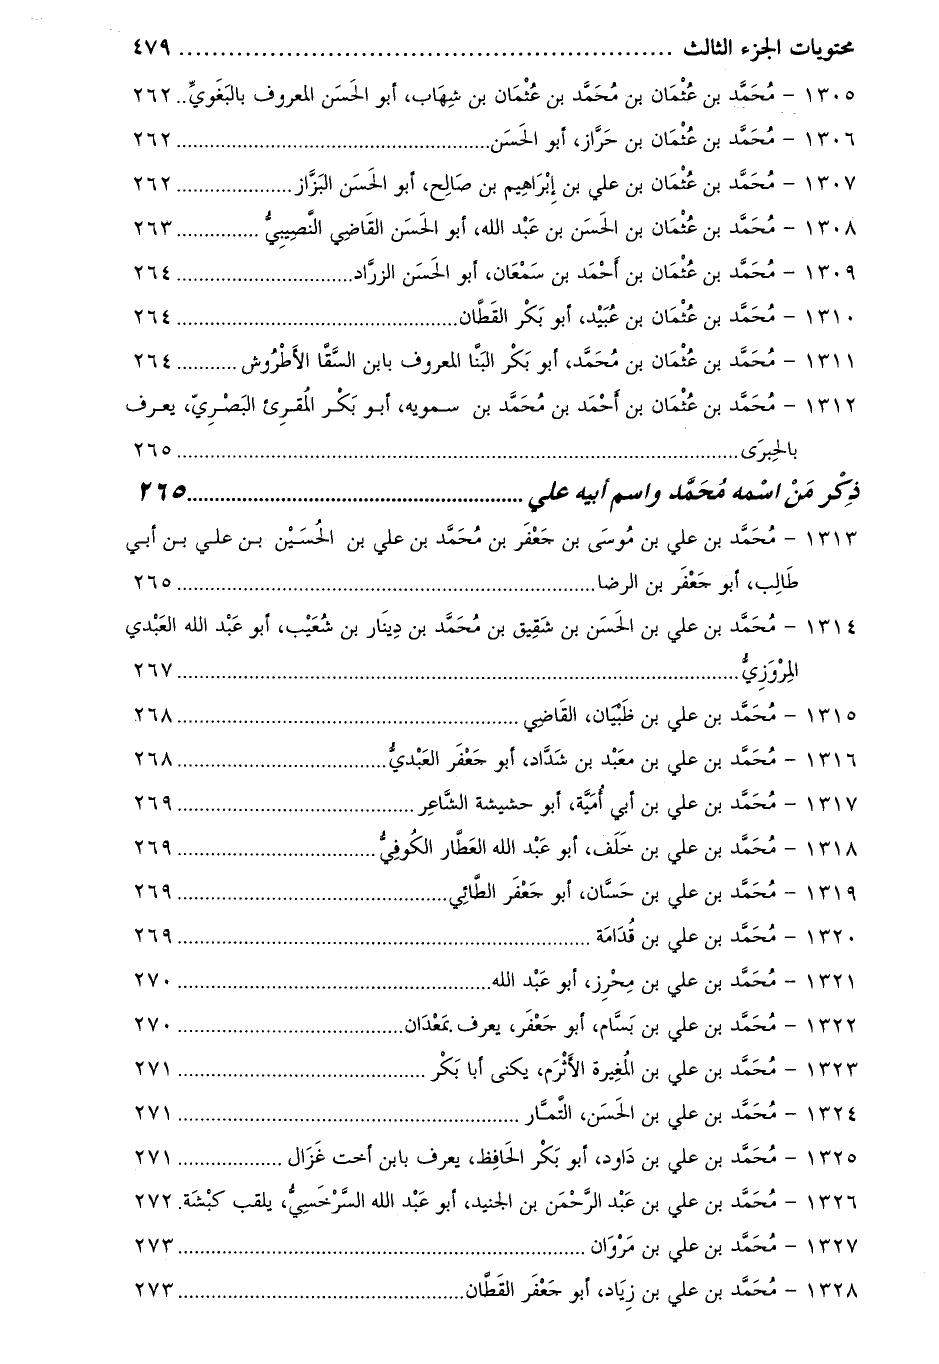 محتويات الجزء الثالث ............................................................ ٤٧٩
١٣٠٥ – مُحَمَّد بن عُثْمان بن مُحَمَّد بن عُثْمان بن شِهاب، أبو الحَسَن المعروف بالبَغَويِّ.. ٢٦٢
١٣٠٦ – مُحَمَّد بن عُثْمان بن حَرَّاز، أبو الحَسَن........................................ ٢٦٢
١٣٠٧ – مُحَمَّد بن عُثْمان بن علي بن إبْرَاهِيم بن صَالِح، أبو الحَسَن البَزَّاز..................... ٢٦٢
١٣٠٨ – مُحَمَّد بن عُثْمان بن الحَسَن بن عَبْد الله، أبو الحَسَن القَاضِي النَّصِيبِيُّ ............... ٢٦٣
١٣٠٩ – مُحَمَّد بن عُثْمان بن أَحْمَد بن سَمْعَان، أبو الحَسَن الزرَّاد................................ ٢٦٤
١٣١٠ – مُحَمَّد بن عُثْمان بن عُبَيْد، أبو بَكْر القَطَّان.................................................. ٢٦٤
١٣١١ – مُحَمَّد بن عُثْمان بن مُحَمَّد، أبو بَكْر البَنَّا المعروف بابن السَّقَّا الأَطْرُوش ........... ٢٦٤
١٣١٢ – مُحَمَّد بن عُثْمان بن أَحْمَد بن مُحَمَّد بن سمويه، أبو بَكْر المُقرِئ البَصْرِيّ، يعرف
بالحِبرَى.................................................................................................... ٢٦٥
ذِكْر مَنْ اسْمه مُحَمَّد واسم أبيه علي ........................................................٢٦٥
١٣١٣ – مُحَمَّد بن علي بن مُوسَى بن جَعْفَر بن مُحَمَّد بن علي بن الحُسَيْن بن علي بن أبي
طَالِب، أبو جَعْفَر بن الرضا............................................................................ ٢٦٥
١٣١٤ – مُحَمَّد بن علي بن الحَسَن بن شَقِيق بن مُحَمَّد بن دِينَار بن شُعَيْب، أبو عَبْد الله العَبْدي
المِرْوَزِيُّ.................................................................................................... ٢٦٧
١٣١٥ – مُحَمَّد بن علي بن ظَبْيَان، القَاضِي ............................................................. ٢٦٨
١٣١٦ – مُحَمَّد بن علي بن معَبْد بن شَدَّاد، أبو جَعْفَر العَبْديُّ..................................... ٢٦٨
١٣١٧ – مُحَمَّد بن علي بن أبي أُمَيَّة، أبو حشيشة الشَّاعِر .......................................... ٢٦٩
١٣١٨ – مُحَمَّد بن علي بن خَلَف، أبو عَبْد الله العَطَّار الكُوفِيُّ................................... ٢٦٩
١٣١٩ – مُحَمَّد بن علي بن حَسَّان، أبو جَعْفَر الطَّائِي................................................ ٢٦٩
١٣٢٠ – مُحَمَّد بن علي بن قُدَامَة .......................................................................... ٢٦٩
١٣٢١ – مُحَمَّد بن علي بن مِحْرِز، أبو عَبْد الله........................................................ ٢٧٠
١٣٢٢ – مُحَمَّد بن علي بن بَسَّام، أبو جَعْفَر، يعرف بمَعْدَان........................................ ٢٧٠
١٣٢٣ – مُحَمَّد بن علي بن المُغِيرة الأَثْرَم، يكنى أبا بَكْر ............................................ ٢٧١
١٣٢٤ – مُحَمَّد بن علي بن الحَسَن، التَّمَّار ............................................................. ٢٧١
١٣٢٥ – مُحَمَّد بن علي بن دَاود، أبو بَكْر الحَافِظ، يعرف بابن أخت غَزَال ................... ٢٧١
١٣٢٦ – مُحَمَّد بن علي بن عَبْد الرَّحْمَن بن الجنيد، أبو عَبْد الله السَّرْخَسِيُّ، يلقب كَبْشَة. ٢٧٢
١٣٢٧ – مُحَمَّد بن علي بن مَرْوَان ......................................................................... ٢٧٣
١٣٢٨ – مُحَمَّد بن علي بن زِيَاد، أبو جَعْفَر القَطَّان................................................... ٢٧٣